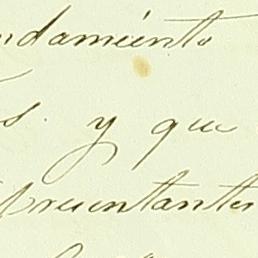 ndamiento
s. y que
presentantes